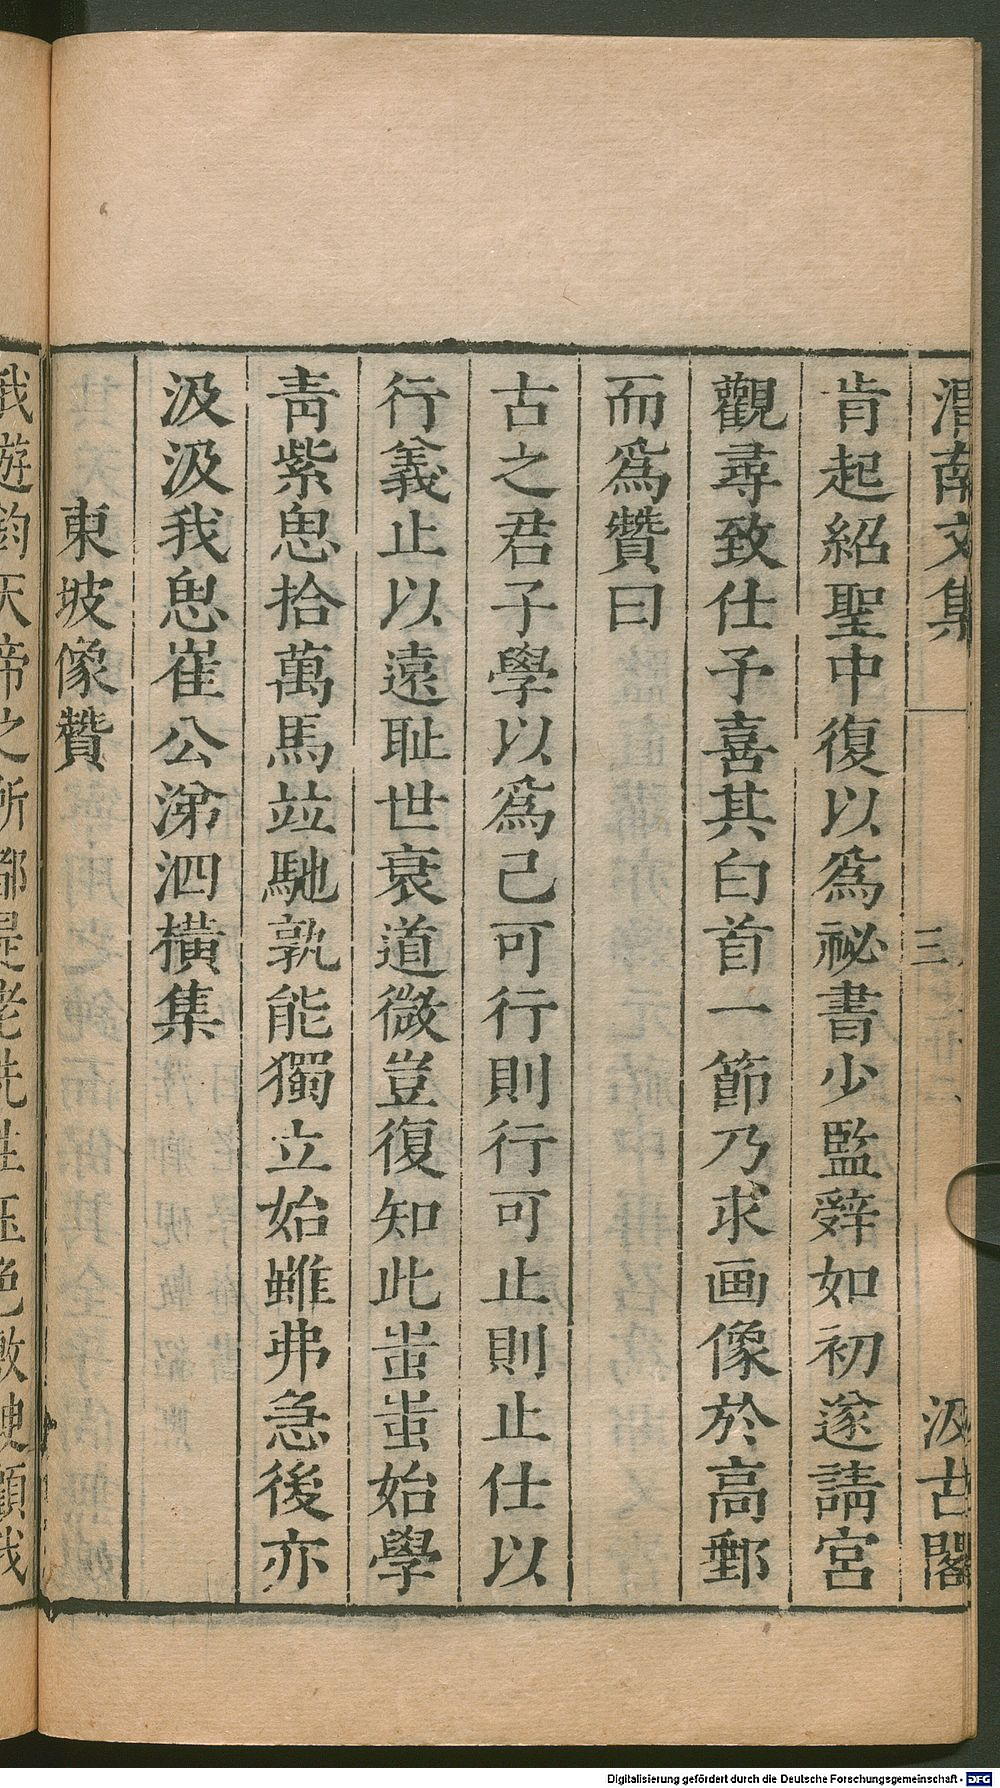 渭南文集
三
汲古閣
肯起紹聖中復以爲祕書少監辭如初遂請宮
觀尋致仕予喜其白首一節乃求画像於高郵
而爲贊曰
古之君子學以爲己可行則行可止則止仕以
行義止以遠耻世衰道微豈復知此蚩蚩始學
青紫思拾萬馬竝馳孰能獨立始雖弗急後亦
汲汲我思崔公涕泗橫集
東坡像贊
我遊鈞天帝之所都是老先生玉色敷腴顧我
Digitalisierung gefördert durch die Deutsche Forschungsgemeinschaft - DFG